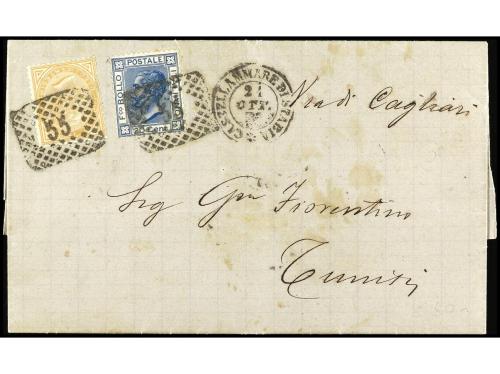 FCO BOLLO
POSTALE
20 Cent
55
CASTELLAMMARE DI STABIA
21
OTT.
Via di Cagliari
Sig Gm Fiorentino
Tunisi